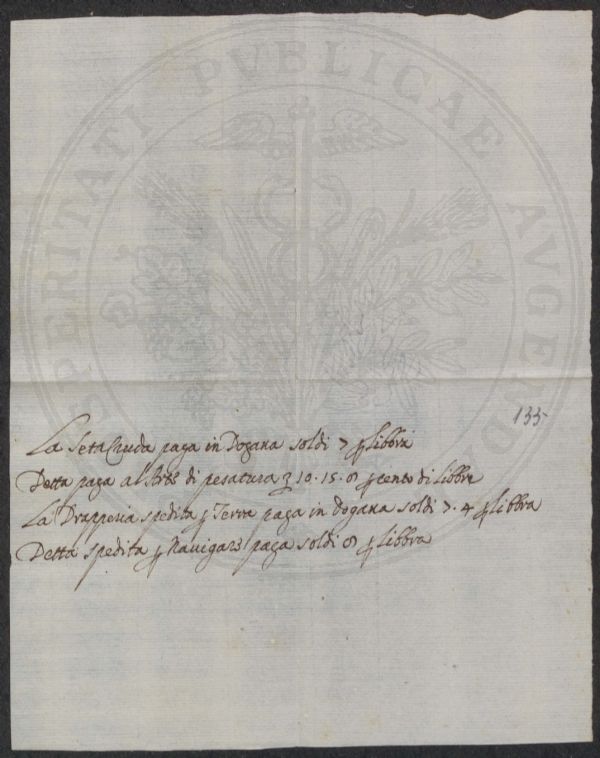 PROSPERITATI PVBLICAE AVGENDAE
135
La Seta Cruda paga in Dogana soldi 7 ꝑ libbra
Detta paga al'Arte di pesatura 10.15.8 ꝑ cento di libbre
La Drapperia spedita ꝑ Terra paga in dogana soldi 7.4 ꝑ libbra
Detta spedita ꝑ Nauigare paga soldi 8 ꝑ libbra